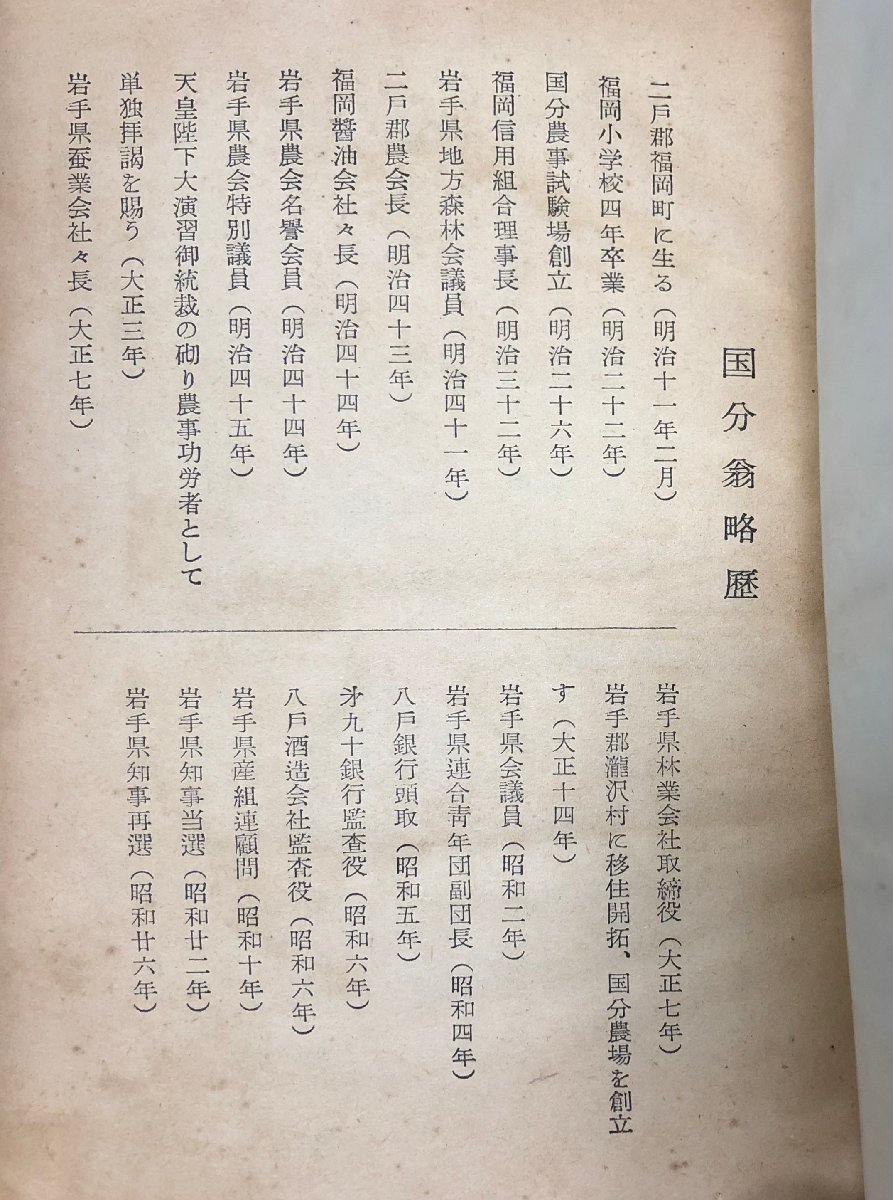 国分翁略歴
二戸郡福岡町に生る(明治十一年二月)
福岡小学校四年卒業(明治二十二年)
国分農事試験場創立(明治二十六年)
福岡信用組合理事長(明治三十二年)
岩手県地方森林会議員(明治四十一年)
二戸郡農会長(明治四十三年)
福岡醤油会社々長(明治四十四年)
岩手県農会名譽会員(明治四十四年)
岩手県農会特別議員(明治四十五年)
天皇陛下大演習御統裁の砌り農事功労者として
単独拝謁を賜う(大正三年)
岩手県蚕業会社々長(大正七年)
岩手県林業会社取締役(大正七年)
岩手郡瀧沢村に移住開拓、国分農場を創立
す(大正十四年)
岩手県会議員(昭和二年)
岩手県連合靑年団副団長(昭和四年)
八戸銀行頭取(昭和五年)
㐧九十銀行監査役(昭和六年)
八戸酒造会社監査役(昭和六年)
岩手県産組連顧問(昭和十年)
岩手県知事当選(昭和廿二年)
岩手県知事再選(昭和廿六年)